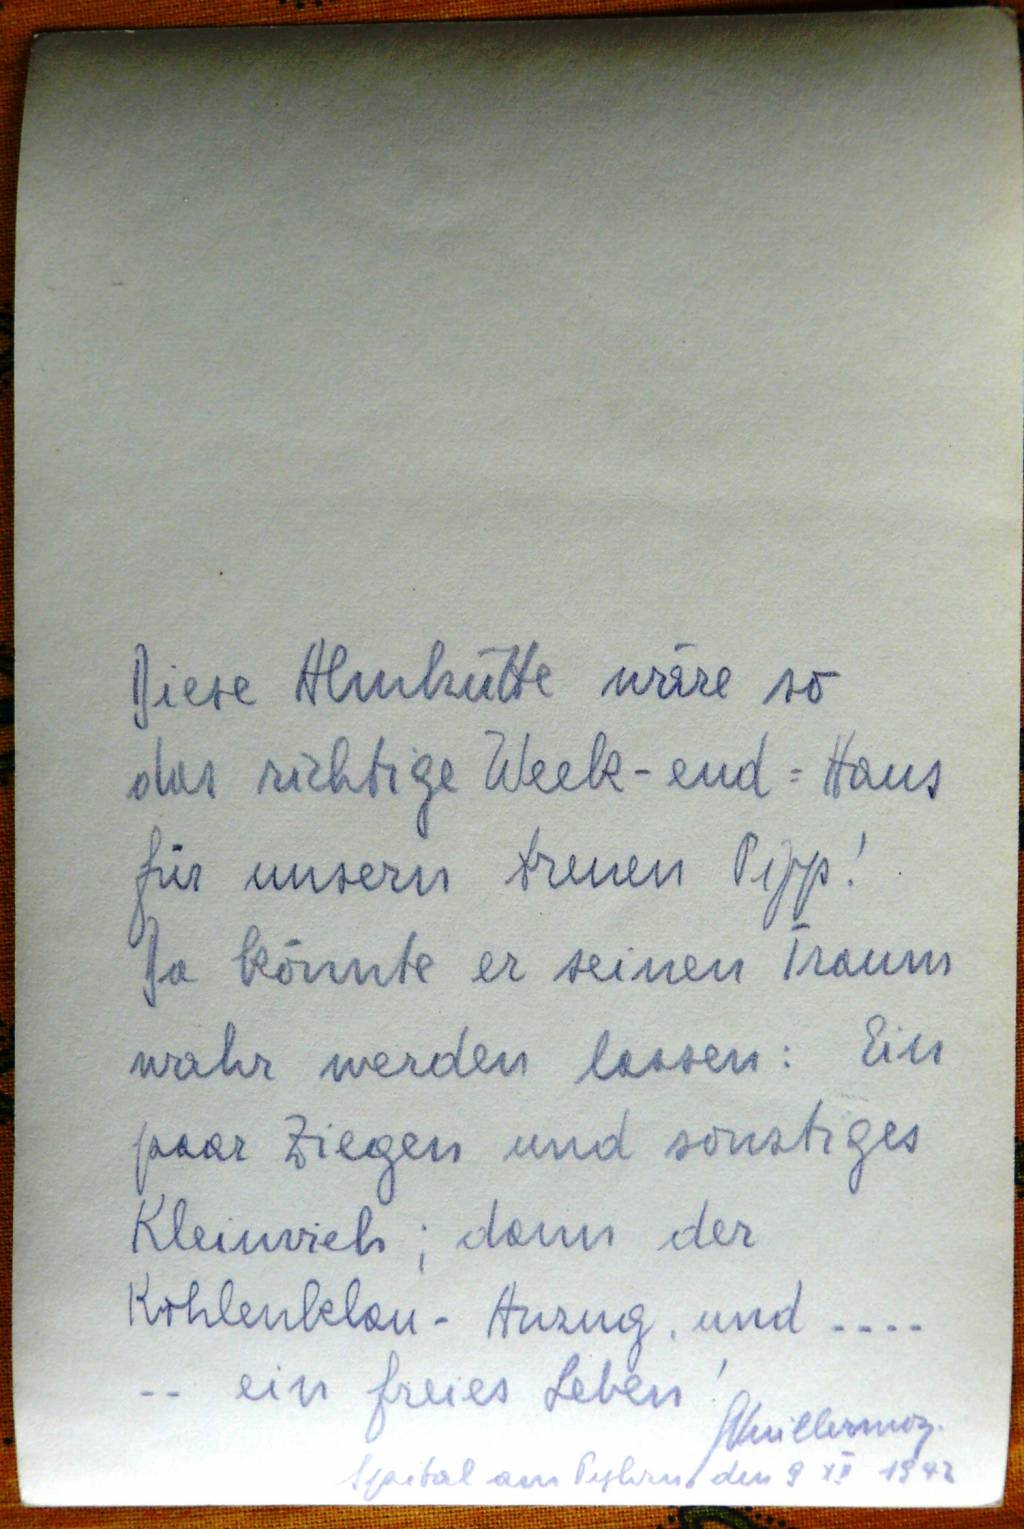 Diese Almhütte wäre so
das richtige Week-end=Haus
für unsern treuen Pipp!
Da könnte er seinen Traum
wahr werden lassen: Ein
paar Ziegen und sonstiges
Kleinvieh; dann der
Kohlenklau-Anzug, und ....
-- ein freies Leben!
Spital am Pyhrn, den 9 XII 1942